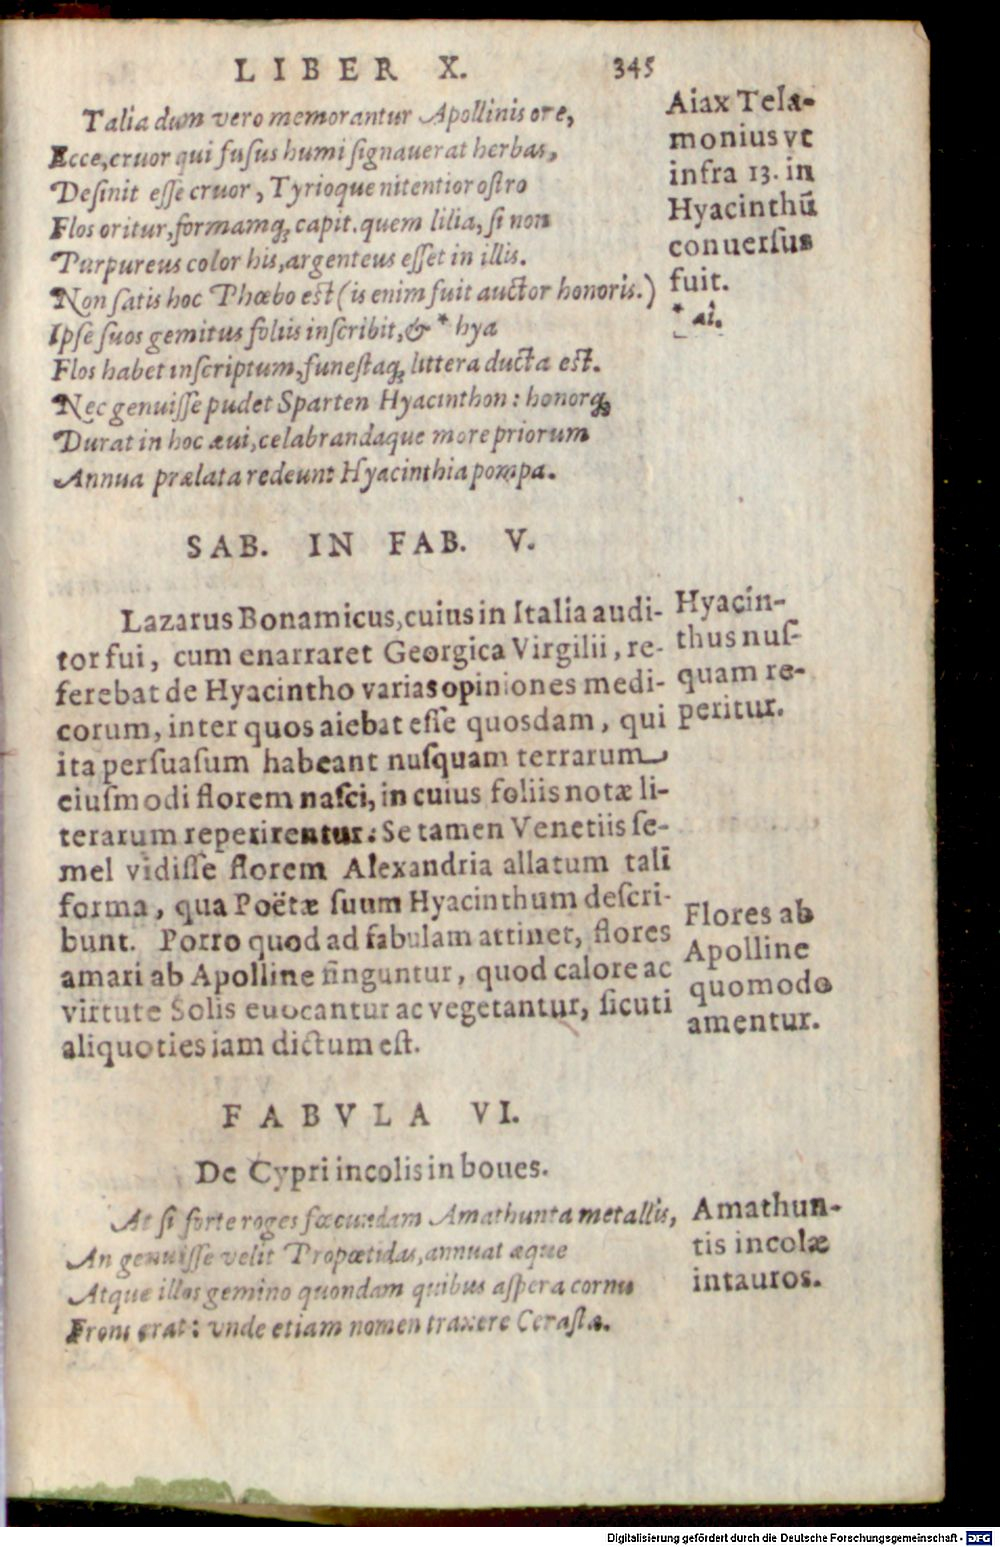 LIBER X. 345
Talia dum vero memorantur Apollinis ore,
Ecce, cruor qui fusus humi signauerat herbas,
Desinit esse cruor, Tyrioque nitentior ostro
Flos oritur, formamq; capit. quem lilia, si non
Purpureus color his, argenteus esset in illis.
Non satis hoc Phœbo est (is enim fuit auctor honoris.)
Ipse suos gemitus foliis inscribit, & * hya
Flos habet inscriptum, funestaq; littera ducta est.
Nec genuisse pudet Sparten Hyacinthon: honorq;
Durat in hoc æui, celabrandaque more priorum
Annua prælata redeunt Hyacinthia pompa.
Aiax Tela-
monius vt
infra 13. in
Hyacinthū
conuersus
fuit.
* ai.
SAB. IN FAB. V.
Lazarus Bonamicus, cuius in Italia audi-
tor fui, cum enarraret Georgica Virgilii, re-
ferebat de Hyacintho varias opiniones medi-
corum, inter quos aiebat esse quosdam, qui
ita persuasum habeant nusquam terrarum
eiusmodi florem nasci, in cuius foliis notæ li-
terarum reperirentur: Se tamen Venetiis se-
mel vidisse florem Alexandria allatum tali
forma, qua Poëtæ suum Hyacinthum descri-
bunt. Porro quod ad fabulam attinet, flores
amari ab Apolline finguntur, quod calore ac
virtute Solis euocantur ac vegetantur, sicuti
aliquoties iam dictum est.
Hyacin-
thus nus-
quam re-
peritur.
Flores ab
Apolline
quomodo
amentur.
FABVLA VI.
De Cypri incolis in boues.
At si forte roges fœcundam Amathunta metallis,
An genuisse velit Propœtidas, annuat æque
Atque illos gemino quondam quibus aspera cornu
Frons erat: vnde etiam nomen traxere Cerastæ.
Amathun-
tis incolæ
in tauros.
Digitalisierung gefördert durch die Deutsche Forschungsgemeinschaft - DFG